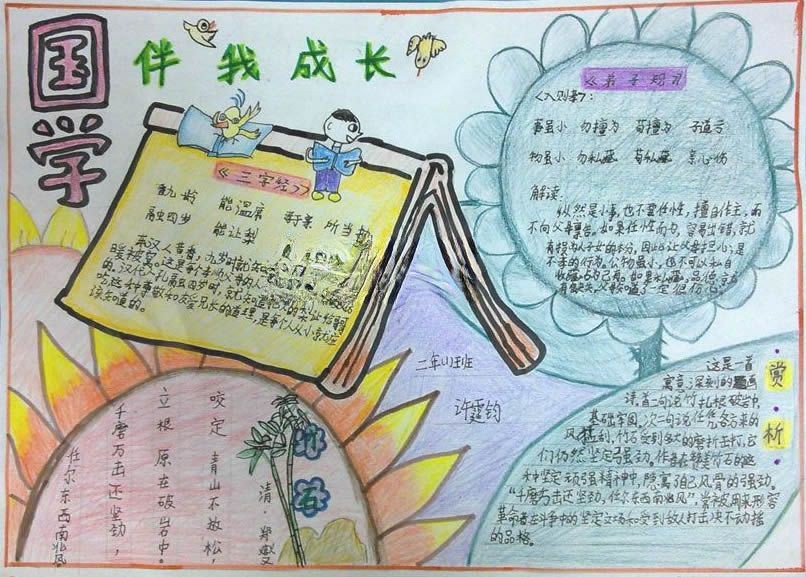 国学
伴我成长
《三字经》
香九龄 能温席 孝于亲 所当执
融四岁 能让梨
东汉人黄香,九岁时就知
的。汉代人孔融四岁时,就知道把大的梨让给
该知道的。
《弟子规》
《入则孝》:
事虽小 勿擅为 苟擅为 子道亏
物虽小 勿私藏 苟私藏 亲心伤
解读:
纵然是小事,也不要任性,擅自作主,而
不向父母禀告。如果任性而为,容易出错,就
有损为人子女的本分,因此让父母担心,是
不孝的行为。公物虽小,也不可以私自
二年(1)班
许霆钧
竹石
清·郑燮
咬定青山不放松,
立根原在破岩中。
千磨万击还坚劲,
任尔东西南北风。
赏析
这是一首
寓意深刻的题画
诗。首二句说竹扎根破岩中,
基础牢固。次二句说任凭各方来的
风猛刮,竹石受到多大的磨折击打,它
们仍然坚定强劲。作者在赞美竹石的这
种坚定顽强精神中,隐寓自己风骨的强劲。
“千磨万击还坚劲,任尔东西南北风”常被用来形容
革命者在斗争中的坚定立场和受到敌人打击决不动摇
的品格。